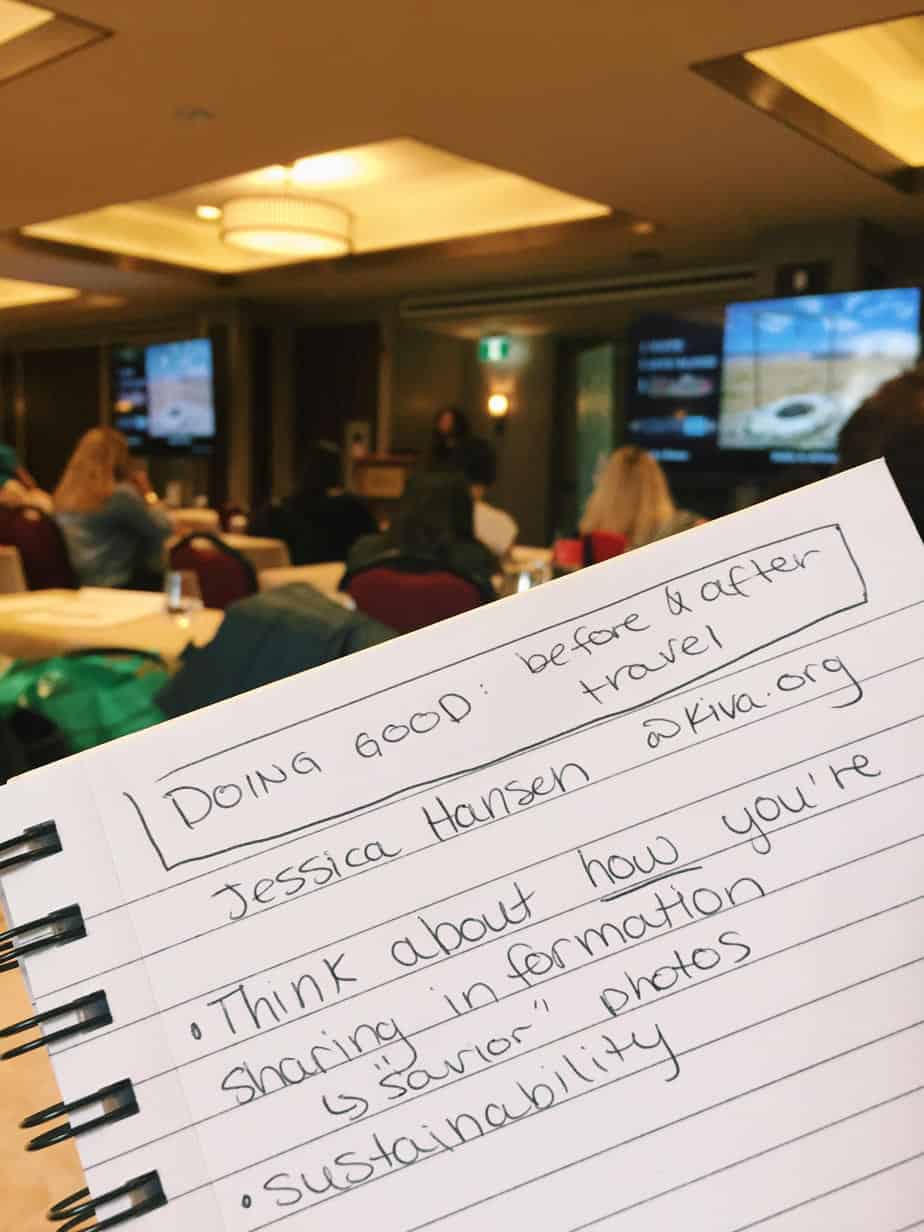 DOING GOOD: before & after
travel
Jessica Hansen @kiva.org
• Think about how you're
sharing information
↳ "savior" photos
• sustainability